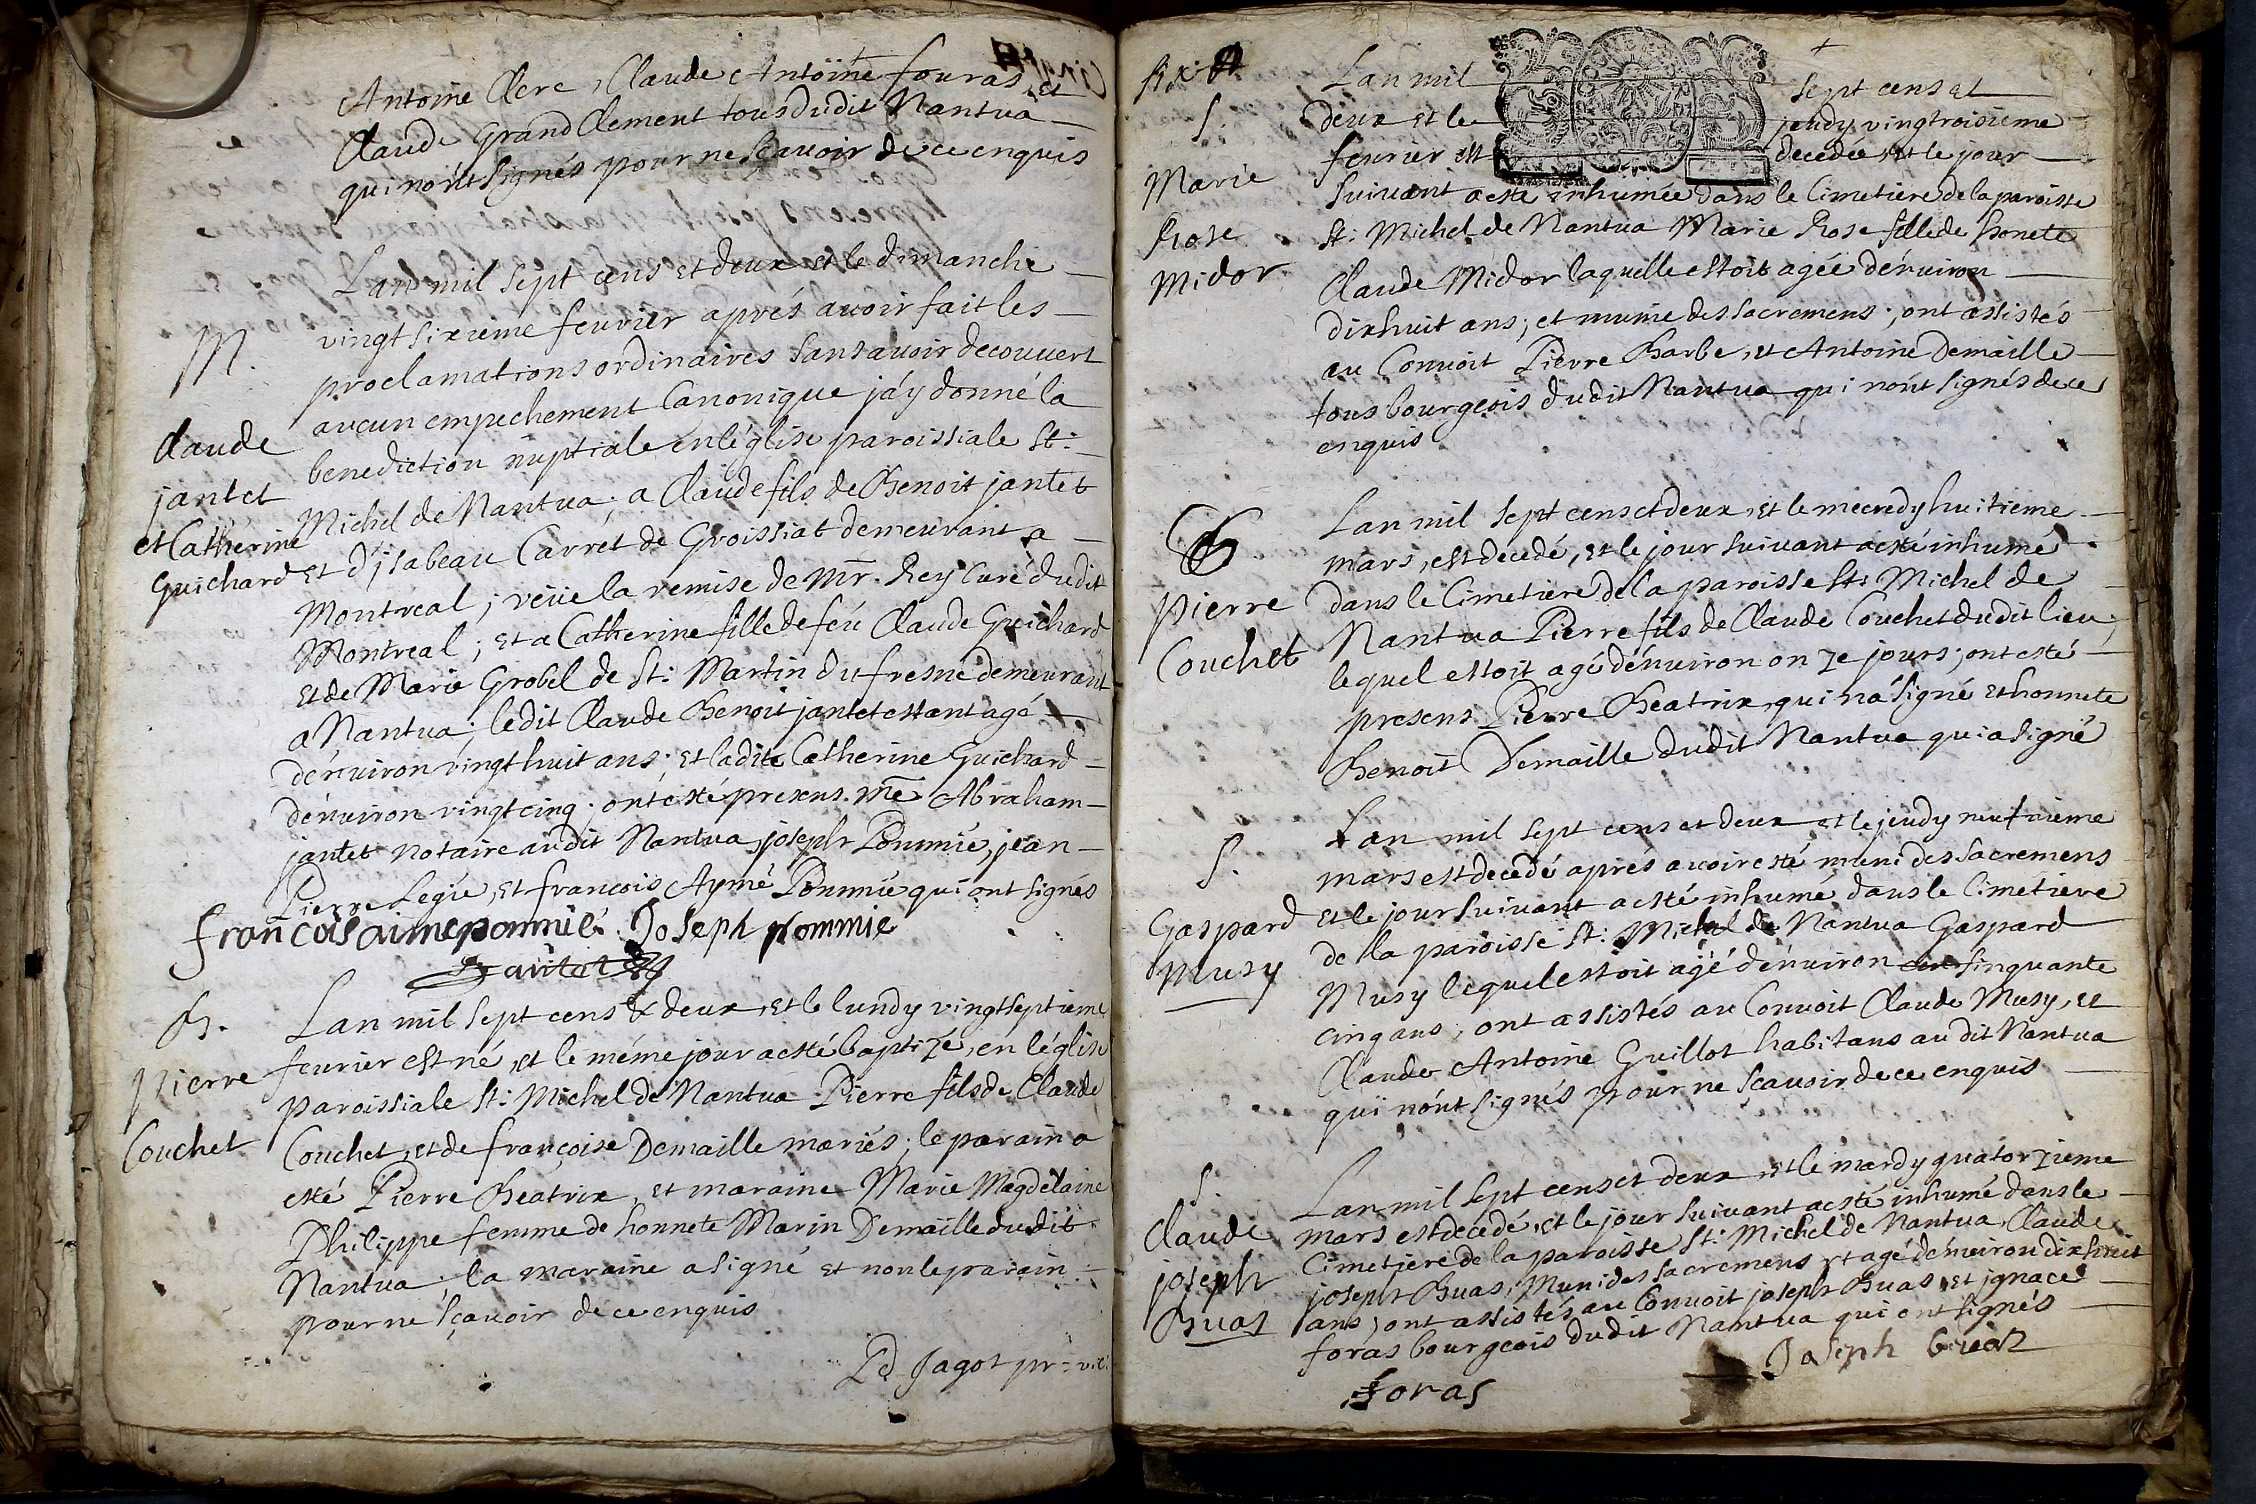 Antoine Clerc, Claude Antoine fouras, et
Claude Grand Clement tous dudit Nantua
qui nónt signés pour ne sçavoir de ce enquis
M.
Claude
jantet
et Catherine
Guichard
Lan mil sept cens et deux et le dimanche
vingt sixieme feurier aprés auoir fait les
proclamations ordinaires sans auoir decouuert
aucun empechement Canonique jáy donné la
benediction nuptiale én léglise paroissiale St:
Michel de Nantua; a Claude fils de Benoit jantet
et d'jsabeau Carret de Groissiat demeurant a
Montreal; veüe la remise de Mr. Rey Curé dudit
Montreal; et a Catherine fille de feú Claude Guichard
et de Marie Grobel de St: Martin du fresne demeurant
a Nantua; ledit Claude Benoit jantet estant agé
dénuiron vingt huit ans; et ladite Catherine Guichard
dénuiron vingt cinq; ont esté presens. Me Abraham
jantet notaire audit Nantua, joseph Pommié, jean
Pierre Legié, et francois Aymé Pommié qui ont signés
francois aime pommié. Joseph pommie
Jantet
B.
Pierre
Couchet
Lan mil sept cens & deux, et le lundy vingt septieme
feurier est né, et le méme jour a esté baptizé, en léglise
paroissiale St: Michel de Nantua Pierre fils de Claude
Couchet, et de françoise Demaille mariés; le parain a
esté Pierre Beatrix, et maraine Marie Magdelaine
Philippe femme de honnete Marin Demaille dudit
Nantua; la maraine a signé et non le parain
pour ne sçauoir de ce enquis
Jagot
six
S.
Marie
Rose
Midor
Lan mil sept cens et
deux et le jeudy vingtroisieme
feurier est decedée et le jour
suiuant a esté inhumée dans le Cimetiere de la paroisse
St: Michel de Nantua Marie Rose fille de honete
Claude Midor laquelle estoit agée dénuiron
dixhuit ans; et munie des sacremens; ont assistés
au Conuoit Pierre Barbe, et Antoine Demaille
tous bourgeois dudit Nantua qui nónt signés de ce
enquis
Pierre
Couchet
Lan mil sept cens et deux, et le mecredy huitieme
mars, est decedé, et le jour suiuant a esté inhumé
dans le Cimetiere de la paroisse St: Michel de
Nantua Pierre fils de Claude Couchet dudit lieu,
lequel estoit agé dénuiron onze jours; ont esté
presens Pierre Beatrix, qui ná signé et honnete
Benoit Demaille dudit Nantua qui a signé
S.
Gaspard
Musy
Lan mil sept cens et deux et le jeudy neufuieme
mars est decedé aprés auoir esté muni des sacremens
et le jour suiuant a esté inhumé dans le Cimetiere
de la paroisse St: Michel de Nantua Gaspard
Musy lequel estoit agé dénuiron sinquante
cinq ans; ont assistés au Conuoit Claude Musy, et
Claude Antoine Guillot habitans audit Nantua
qui nónt signés pour ne sçauoir de ce enquis
S.
Claude
joseph
Buas
Lan mil sept cens et deux et le mardy quátorzieme
mars est decédé, et le jour suiuant a esté inhumé dans le
Cimetiere de la paroisse St: Michel de Nantua, Claude
joseph Buas, Muni des sacremens et agé dénuiron dixhuit
ans; ont assistés au Conuoit joseph Buas, et jgnace
forás bourgeois dudit Nantua qui ont signés
Joseph buaz
foras